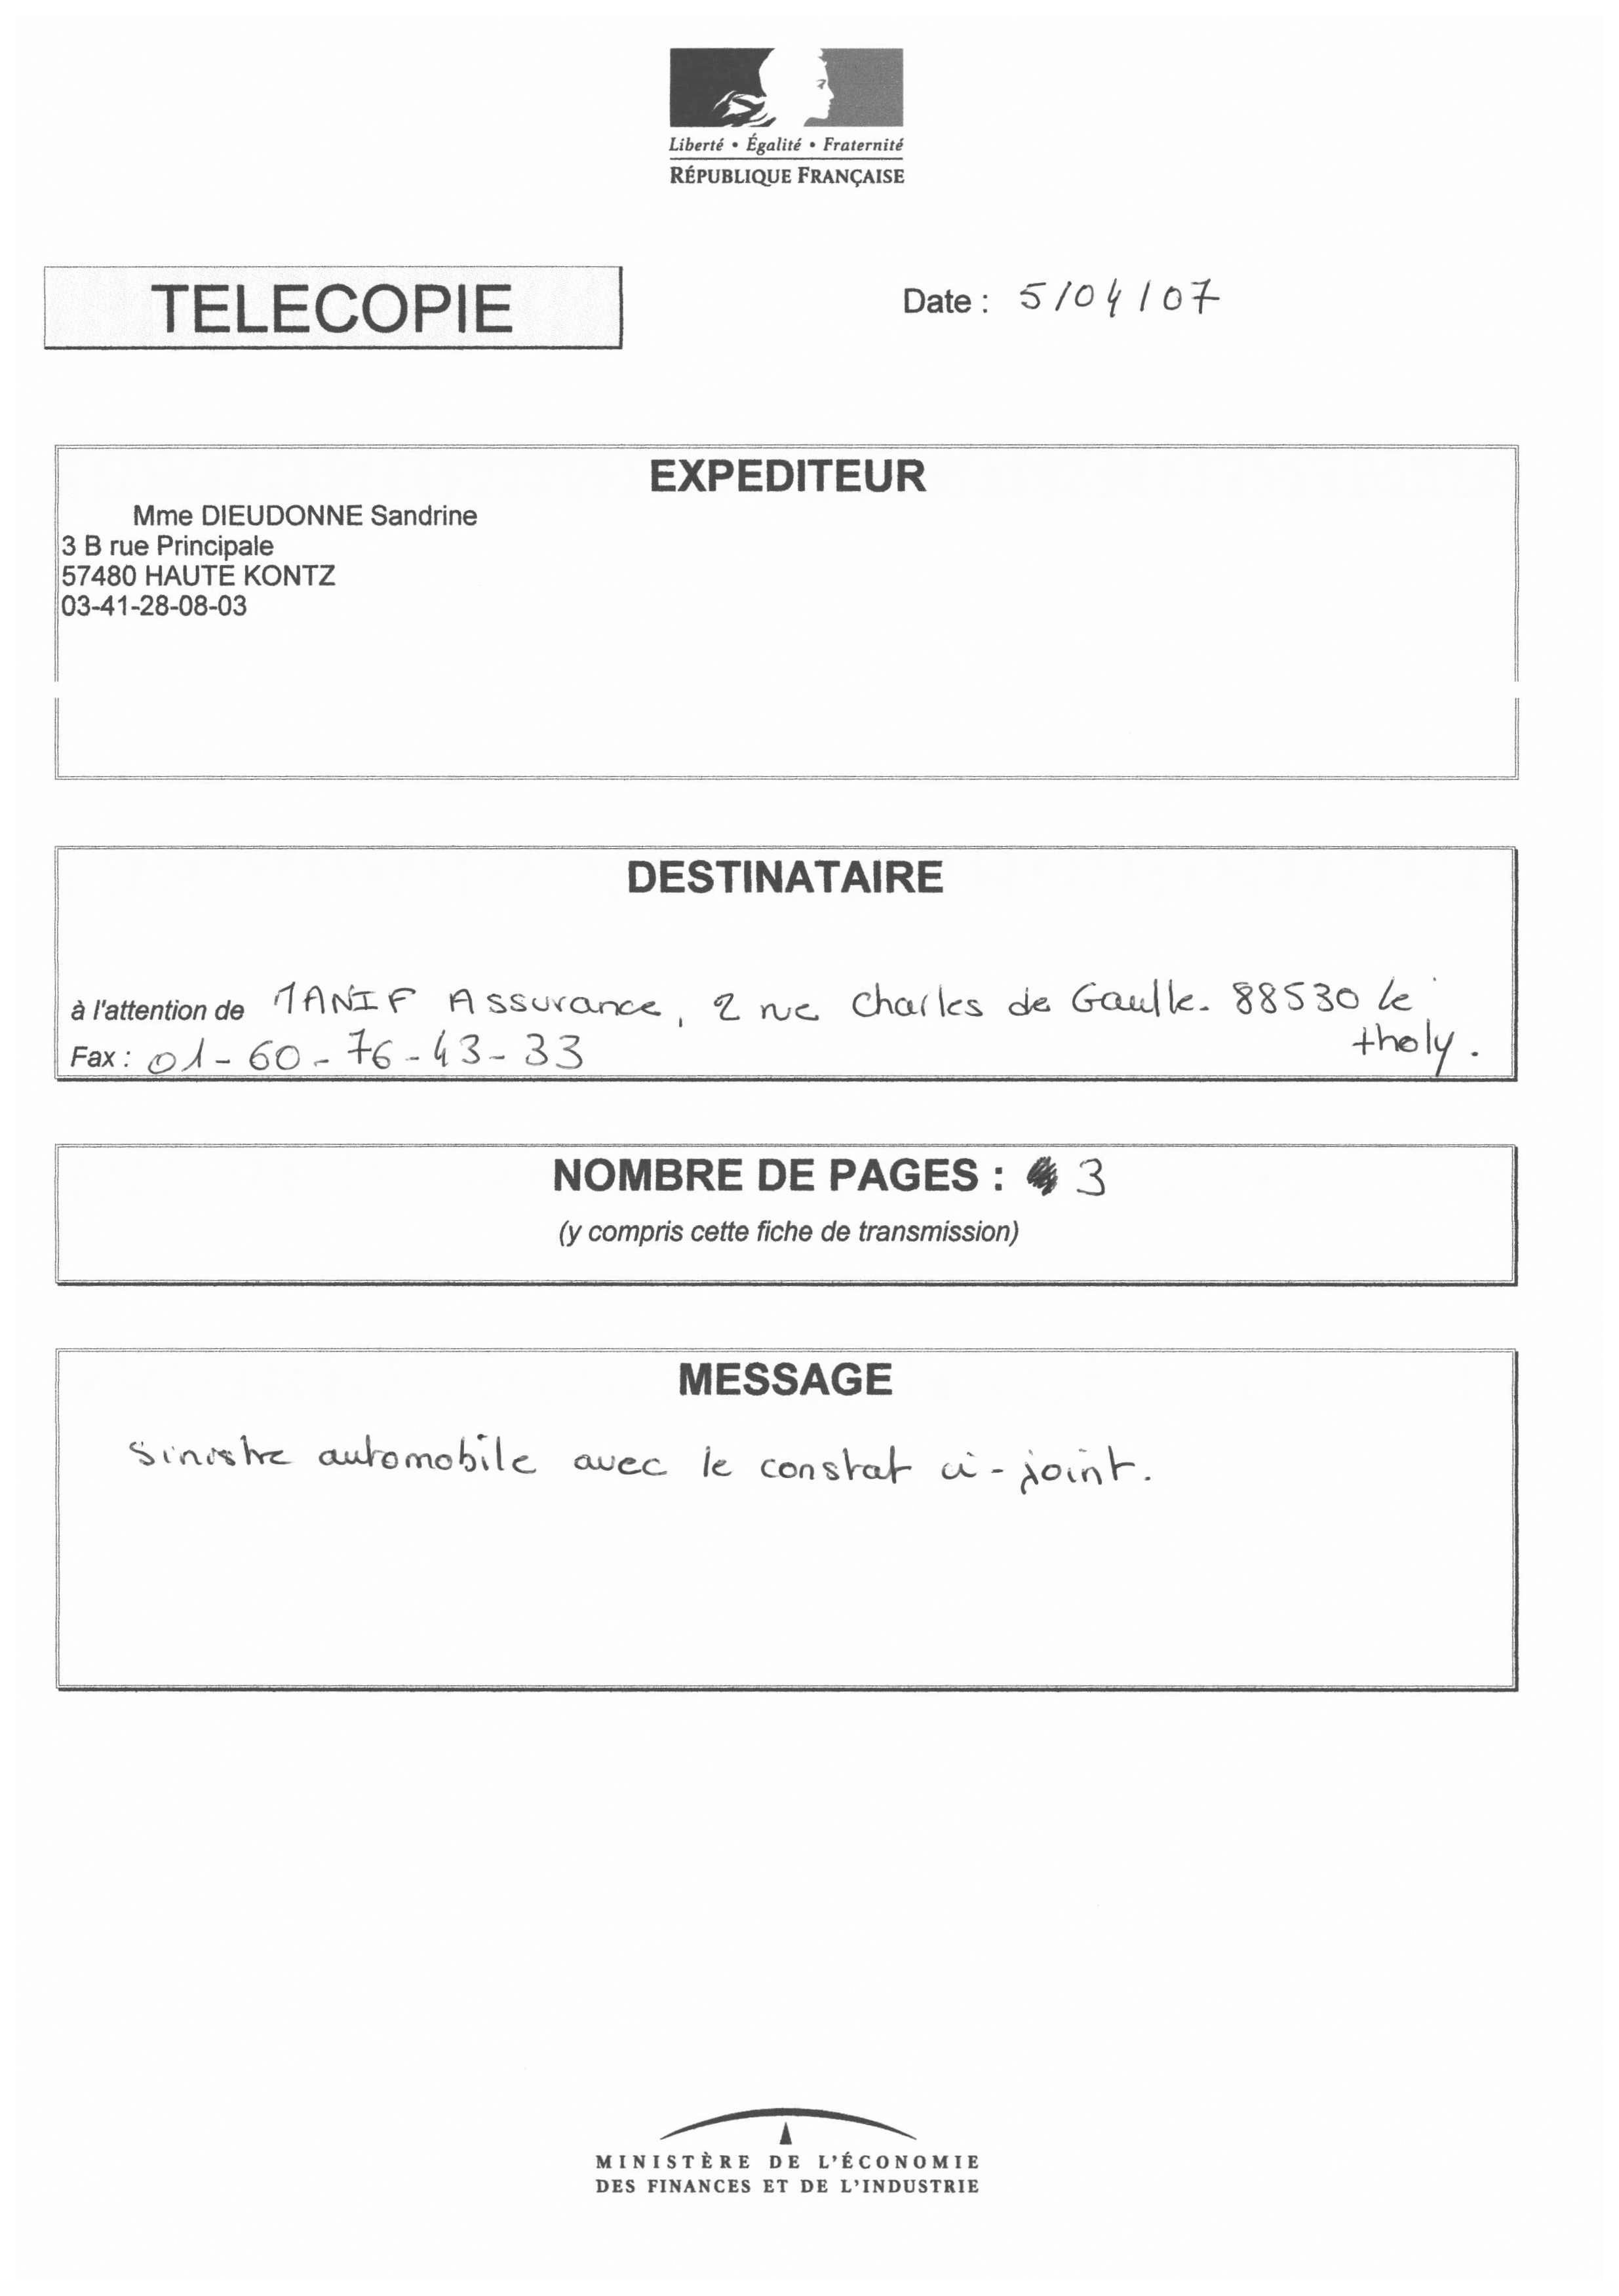 Liberté • Égalité • Fraternité
RÉPUBLIQUE FRANÇAISE
TELECOPIE
Date : 5/04/07
EXPEDITEUR
Mme DIEUDONNE Sandrine
3 B rue Principale
57480 HAUTE KONTZ
03-41-28-08-03
DESTINATAIRE
à l'attention de MANIF Assurance, 2 rue Charles de Gaulle. 88530 le
tholy.
Fax : 01-60-76-43-33
NOMBRE DE PAGES : 3
(y compris cette fiche de transmission)
MESSAGE
Sinistre automobile avec le constat ci-joint.
MINISTÈRE DE L'ÉCONOMIE
DES FINANCES ET DE L'INDUSTRIE